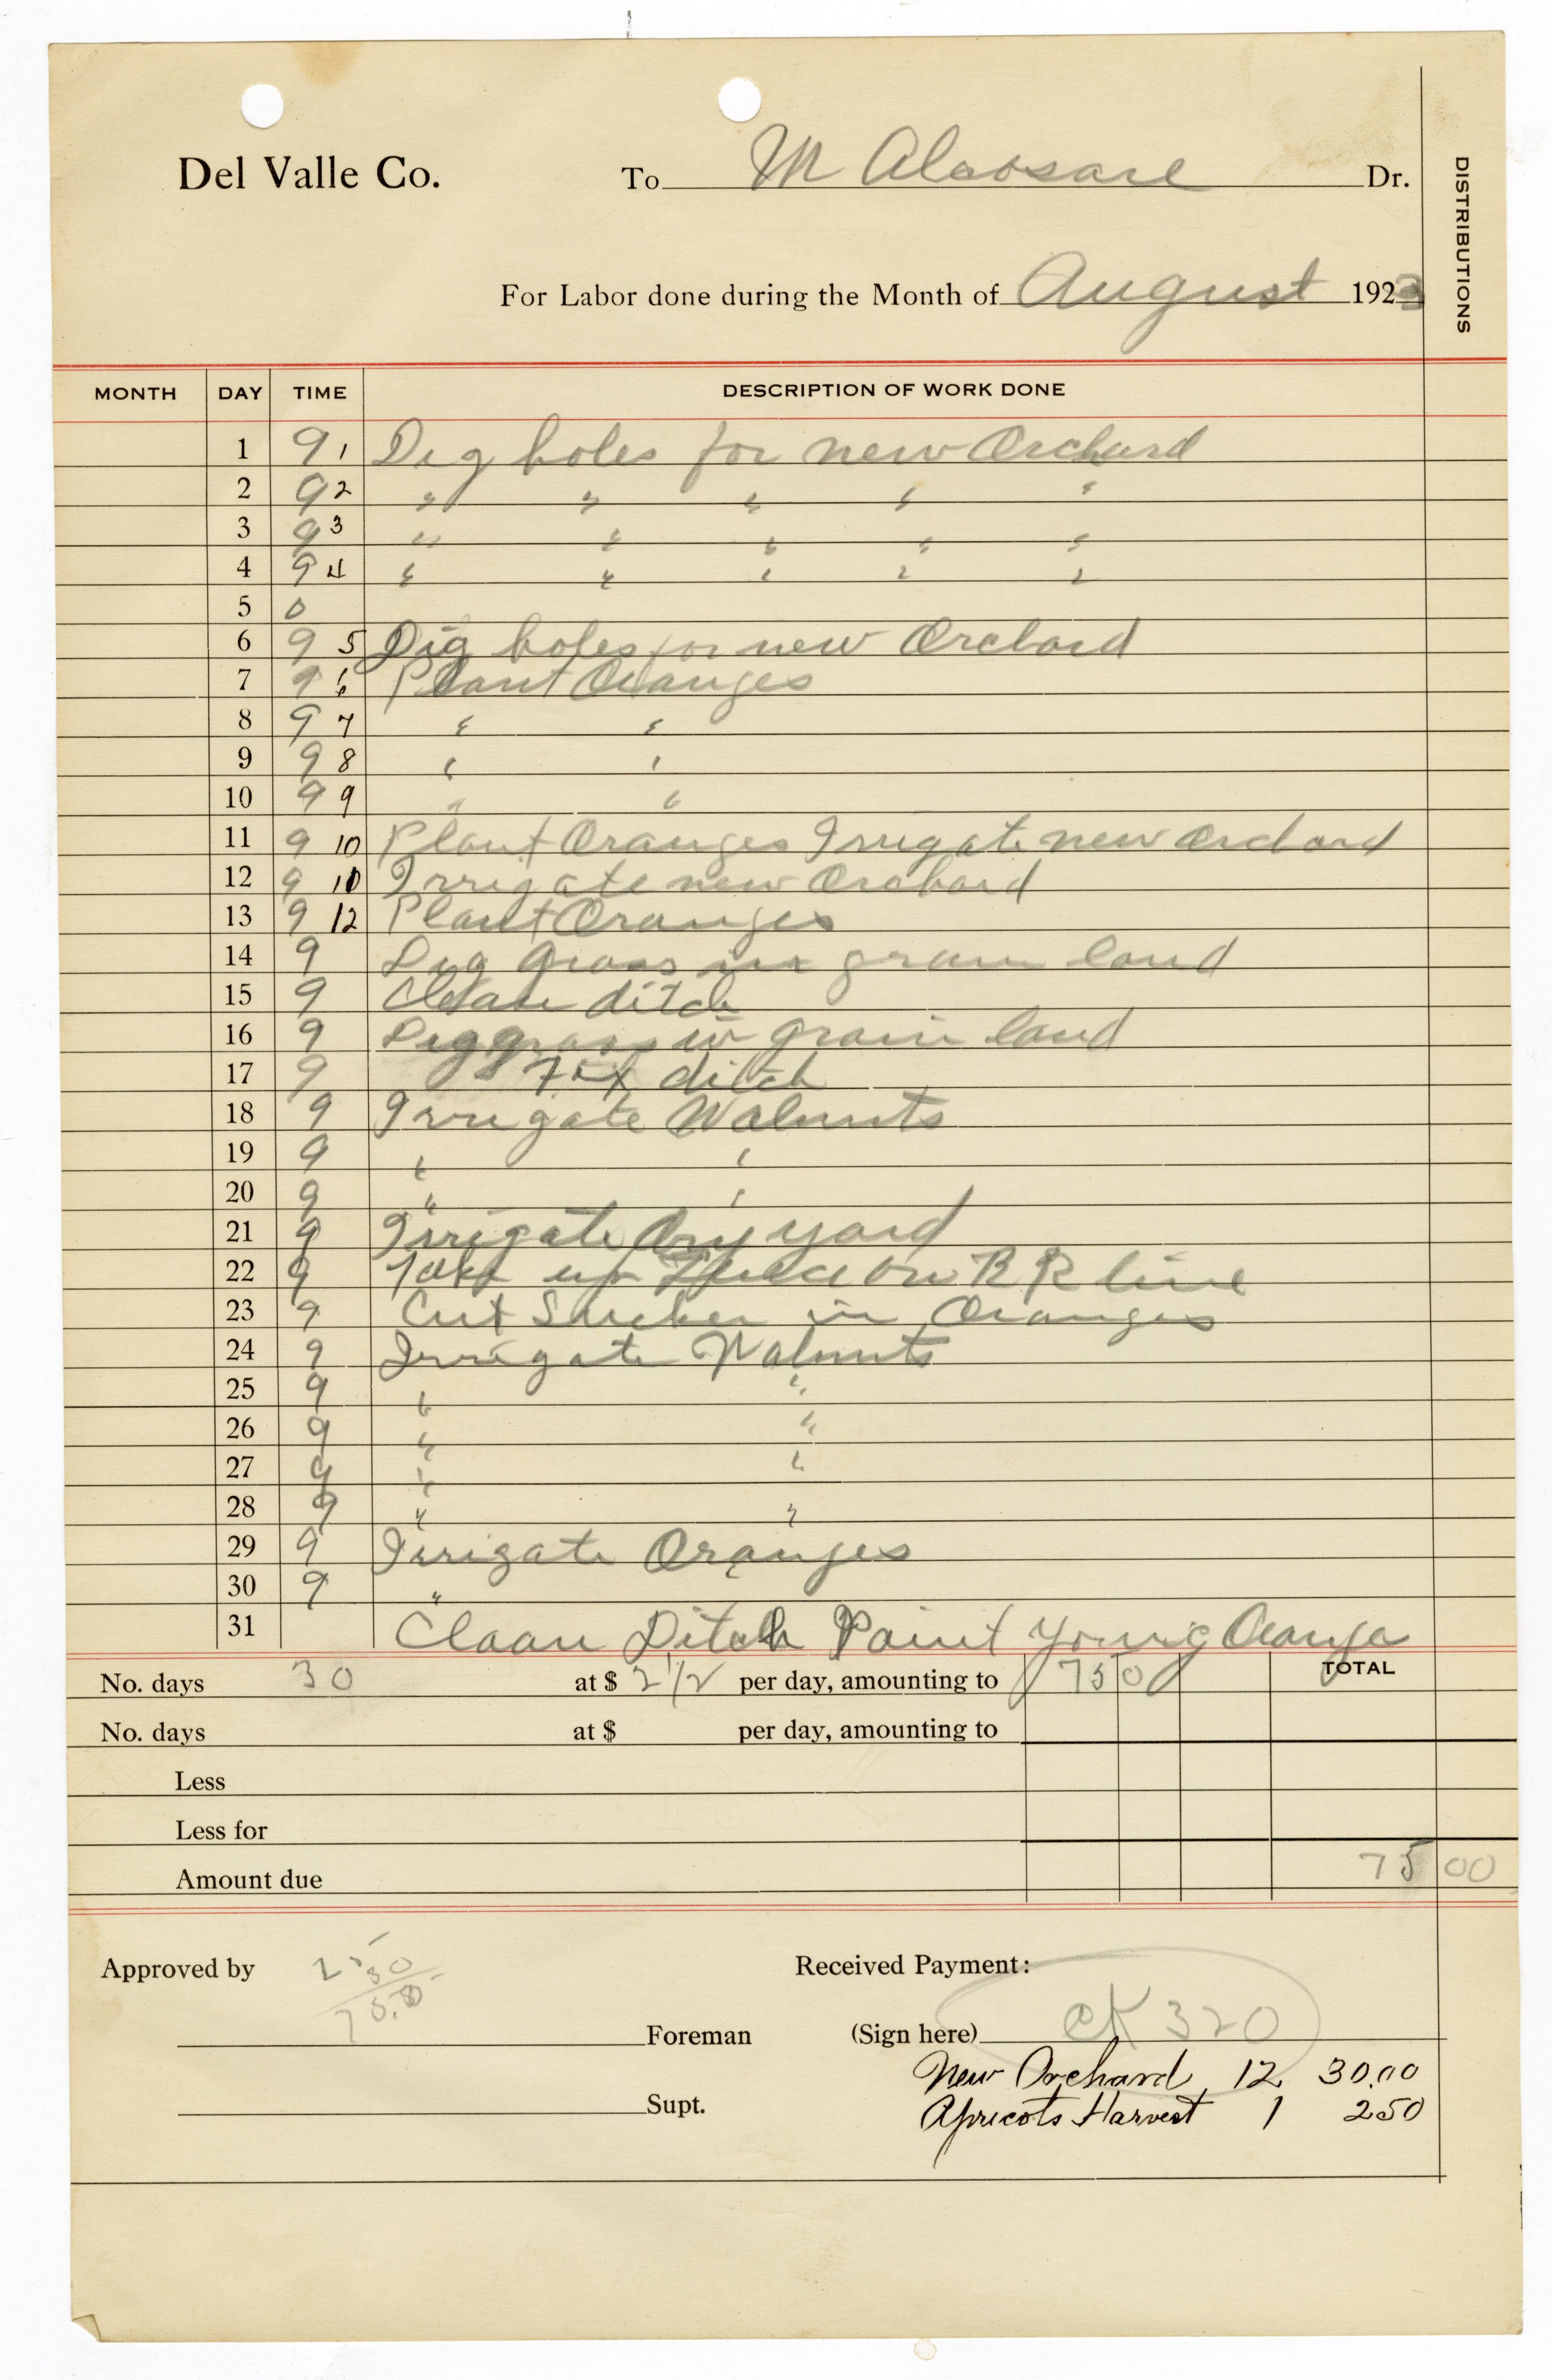 Del Valle Co. To M Alcosare Dr.
DISTRIBUTIONS
For Labor done during the Month of August 1923
MONTH DAY TIME DESCRIPTION OF WORK DONE
1 9 1 Dig holes for new Orchard
2 9 2 " " " " "
3 9 3 " " " " "
4 9 4 " " " " "
5 0
6 9 5 Dig holes for new Orchard
7 9 6 Plant Oranges
8 9 7 " "
9 9 8 " "
10 9 9 " "
11 9 10 Plant Oranges Irrigate new Orchard
12 9 10 Irrigate new Orchard
13 9 12 Plant Oranges
14 9 Dig Grass in grain land
15 9 Clean ditch
16 9 Dig grass in grain land
17 9 Fix ditch
18 9 Irrigate Walnuts
19 9 " "
20 9 " "
21 9 Irrigate Dry yard
22 9 Take up on R R line
23 9 Cut Sucker in Oranges
24 9 Irrigate Walnuts
25 9 " "
26 9 " "
27 9 " "
28 9 " "
29 9 Irrigate Oranges
30 9 "
31 Claan Ditch Paint Young Orange
No. days 30 at $ 2 1/2 per day, amounting to 75 0 TOTAL
No. days at $ per day, amounting to
Less
Less for
Amount due 75 00
Approved by Received Payment:
30
Foreman (Sign here) CK 320
New Orchard 12 30.00
Supt. Apricots Harvest 1 2 50